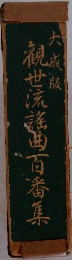 大成版
観世流謡曲百番集